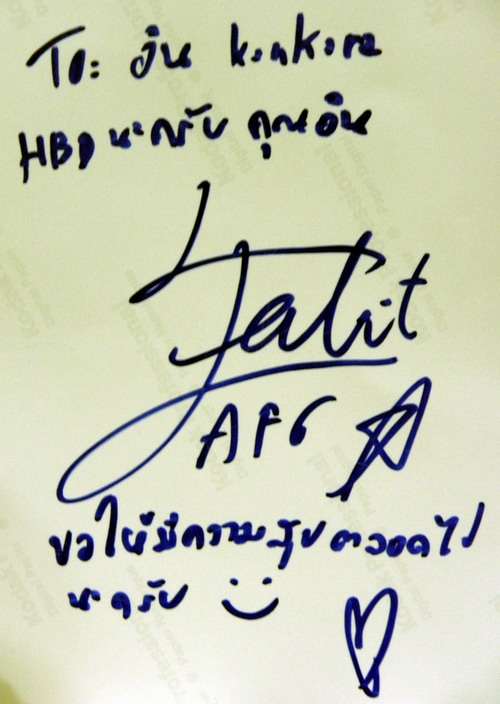 To: อิน konkore
HBD นะครับ คุณอิน
Zalit
AF6
ขอให้มีความสุขตลอดไป
นะครับ